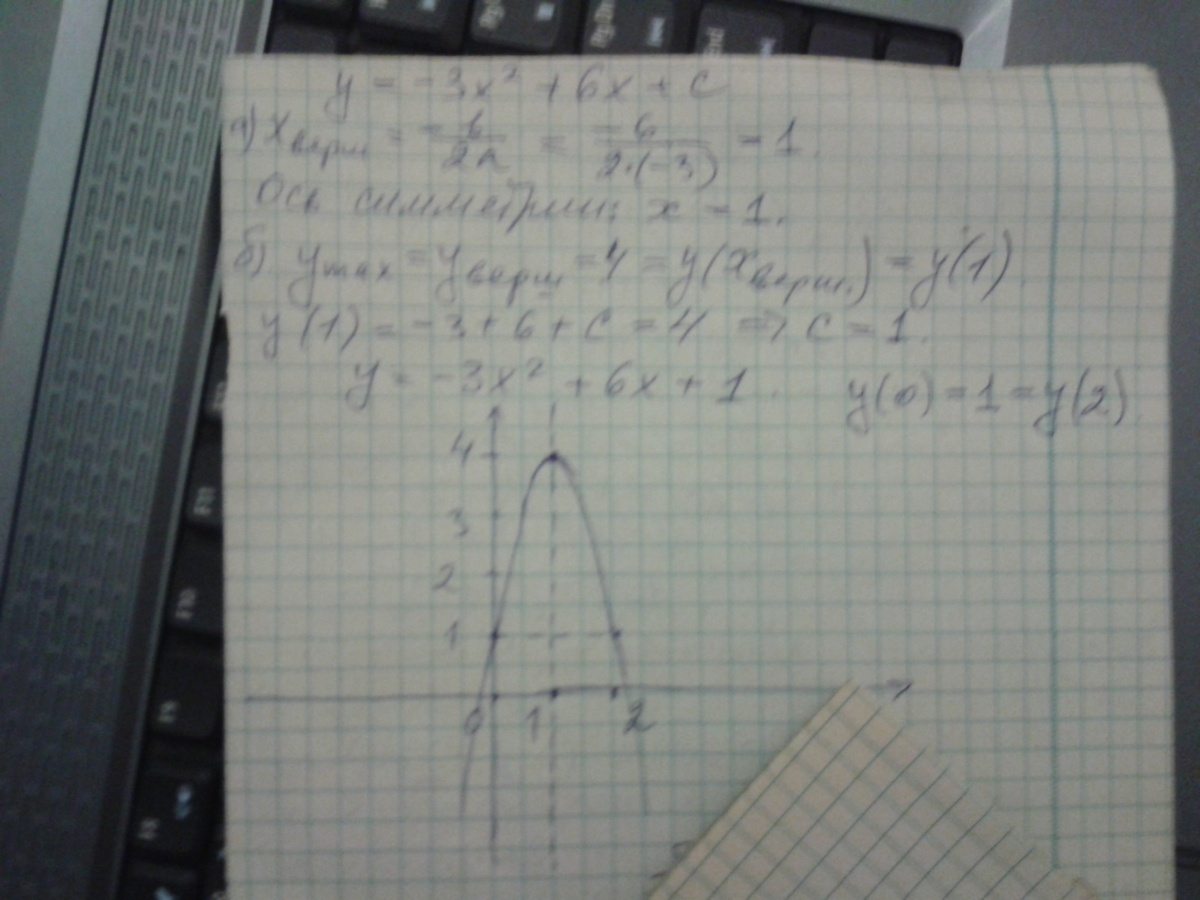 y = -3x² + 6x + c
а) xверш = -b/2a = -6/2·(-3) = 1.
Ось симметрии: x = 1.
б) ymax = yверш = 4 = y(xверш.) = y(1).
y(1) = -3 + 6 + c = 4 => c = 1.
y = -3x² + 6x + 1. y(0) = 1 = y(2)
4
3
2
1
0 1 2